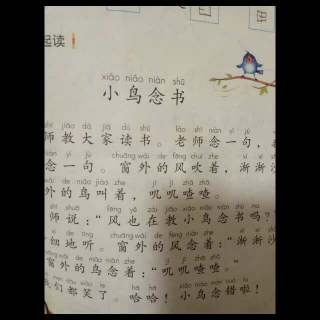 起读
xiǎo niǎo niàn shū
小鸟念书
shī jiāo dà jiā dú shū lǎo shī niàn yí jù
师教大家读书。老师念一句，
niàn yí jù chuāng wài de fēng chuī zhe
念一句。窗外的风吹着，渐渐沙
wài de niǎo jiào zhe jī jī zhā zhā
外的鸟叫着，叽叽喳喳。
shī shuō fēng yě zài jiāo xiǎo niǎo niàn shū ma
师说：“风也在教小鸟念书吗？
xì de tīng chuāng wài de fēng niàn zhe
细地听。窗外的风念着：“渐渐沙
wài de niǎo niàn zhe jī jī zhā zhā
窗外的鸟念着：“叽叽喳喳。”
men dōu xiào le hā hā xiǎo niǎo niàn cuò la
我们都笑了。哈哈！小鸟念错啦！